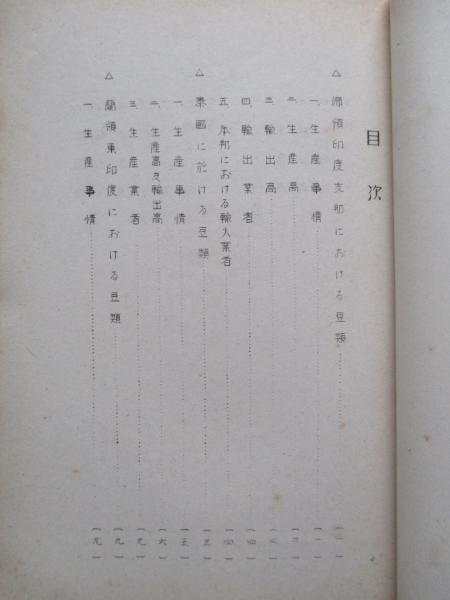 目次
△ 佛領印度支那における豆類 (一)
一、生産事情 (一)
二、生産高 (二)
三、輸出高
四、輸出業者 (四)
五、本邦における輸入業者 (四)
△ 泰國に於ける豆類 (五)
一、生産事情 (五)
二、生産高及輸出高 (六)
三、生産業者 (九)
△ 蘭領東印度における豆類 (九)
一、生産事情 (九)